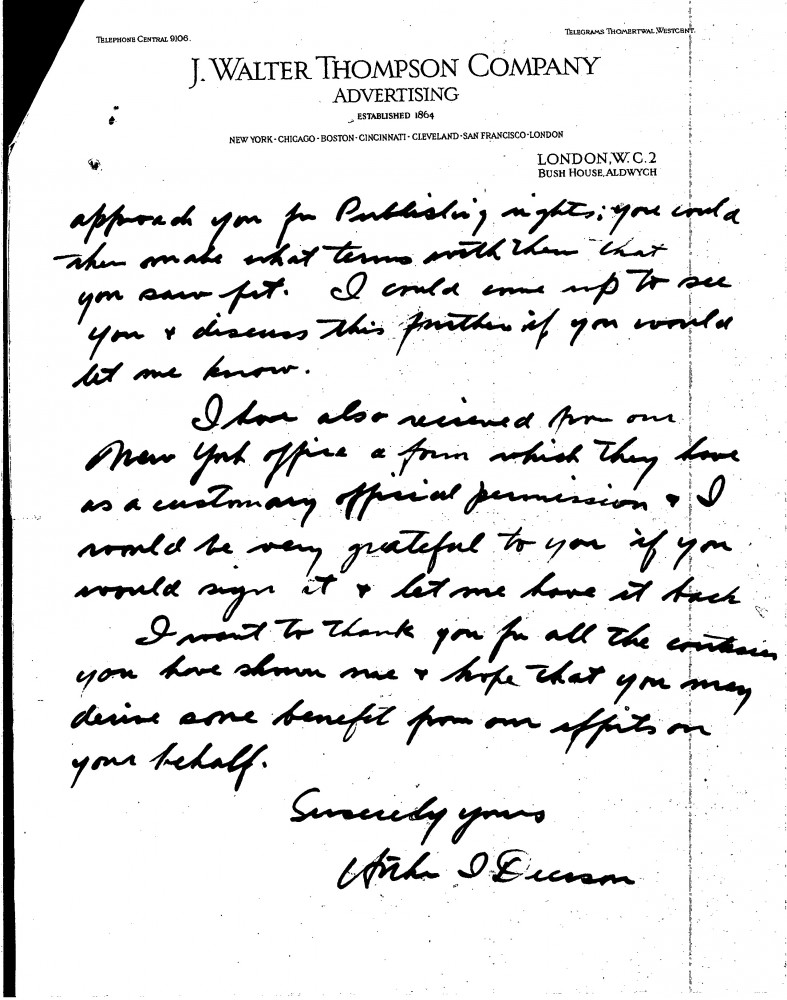 TELEPHONE CENTRAL 9106.
TELEGRAMS THOMERTWAL, WESTCENT.
J. WALTER THOMPSON COMPANY
ADVERTISING
ESTABLISHED 1864
NEW YORK - CHICAGO - BOSTON - CINCINNATI - CLEVELAND - SAN FRANCISCO - LONDON
LONDON, W.C. 2
BUSH HOUSE, ALDWYCH
approach you for Publishing rights; you could
then make what terms with them that
you saw fit. I could come up to see
you & discuss this further if you would
let me know.
I have also received from our
New York office a form which they have
as a customary official permission & I
would be very grateful to you if you
would sign it & let me have it back
I want to thank you for all the courtesies
you have shown me & hope that you may
derive some benefit from our efforts on
your behalf.
Sincerely yours
I